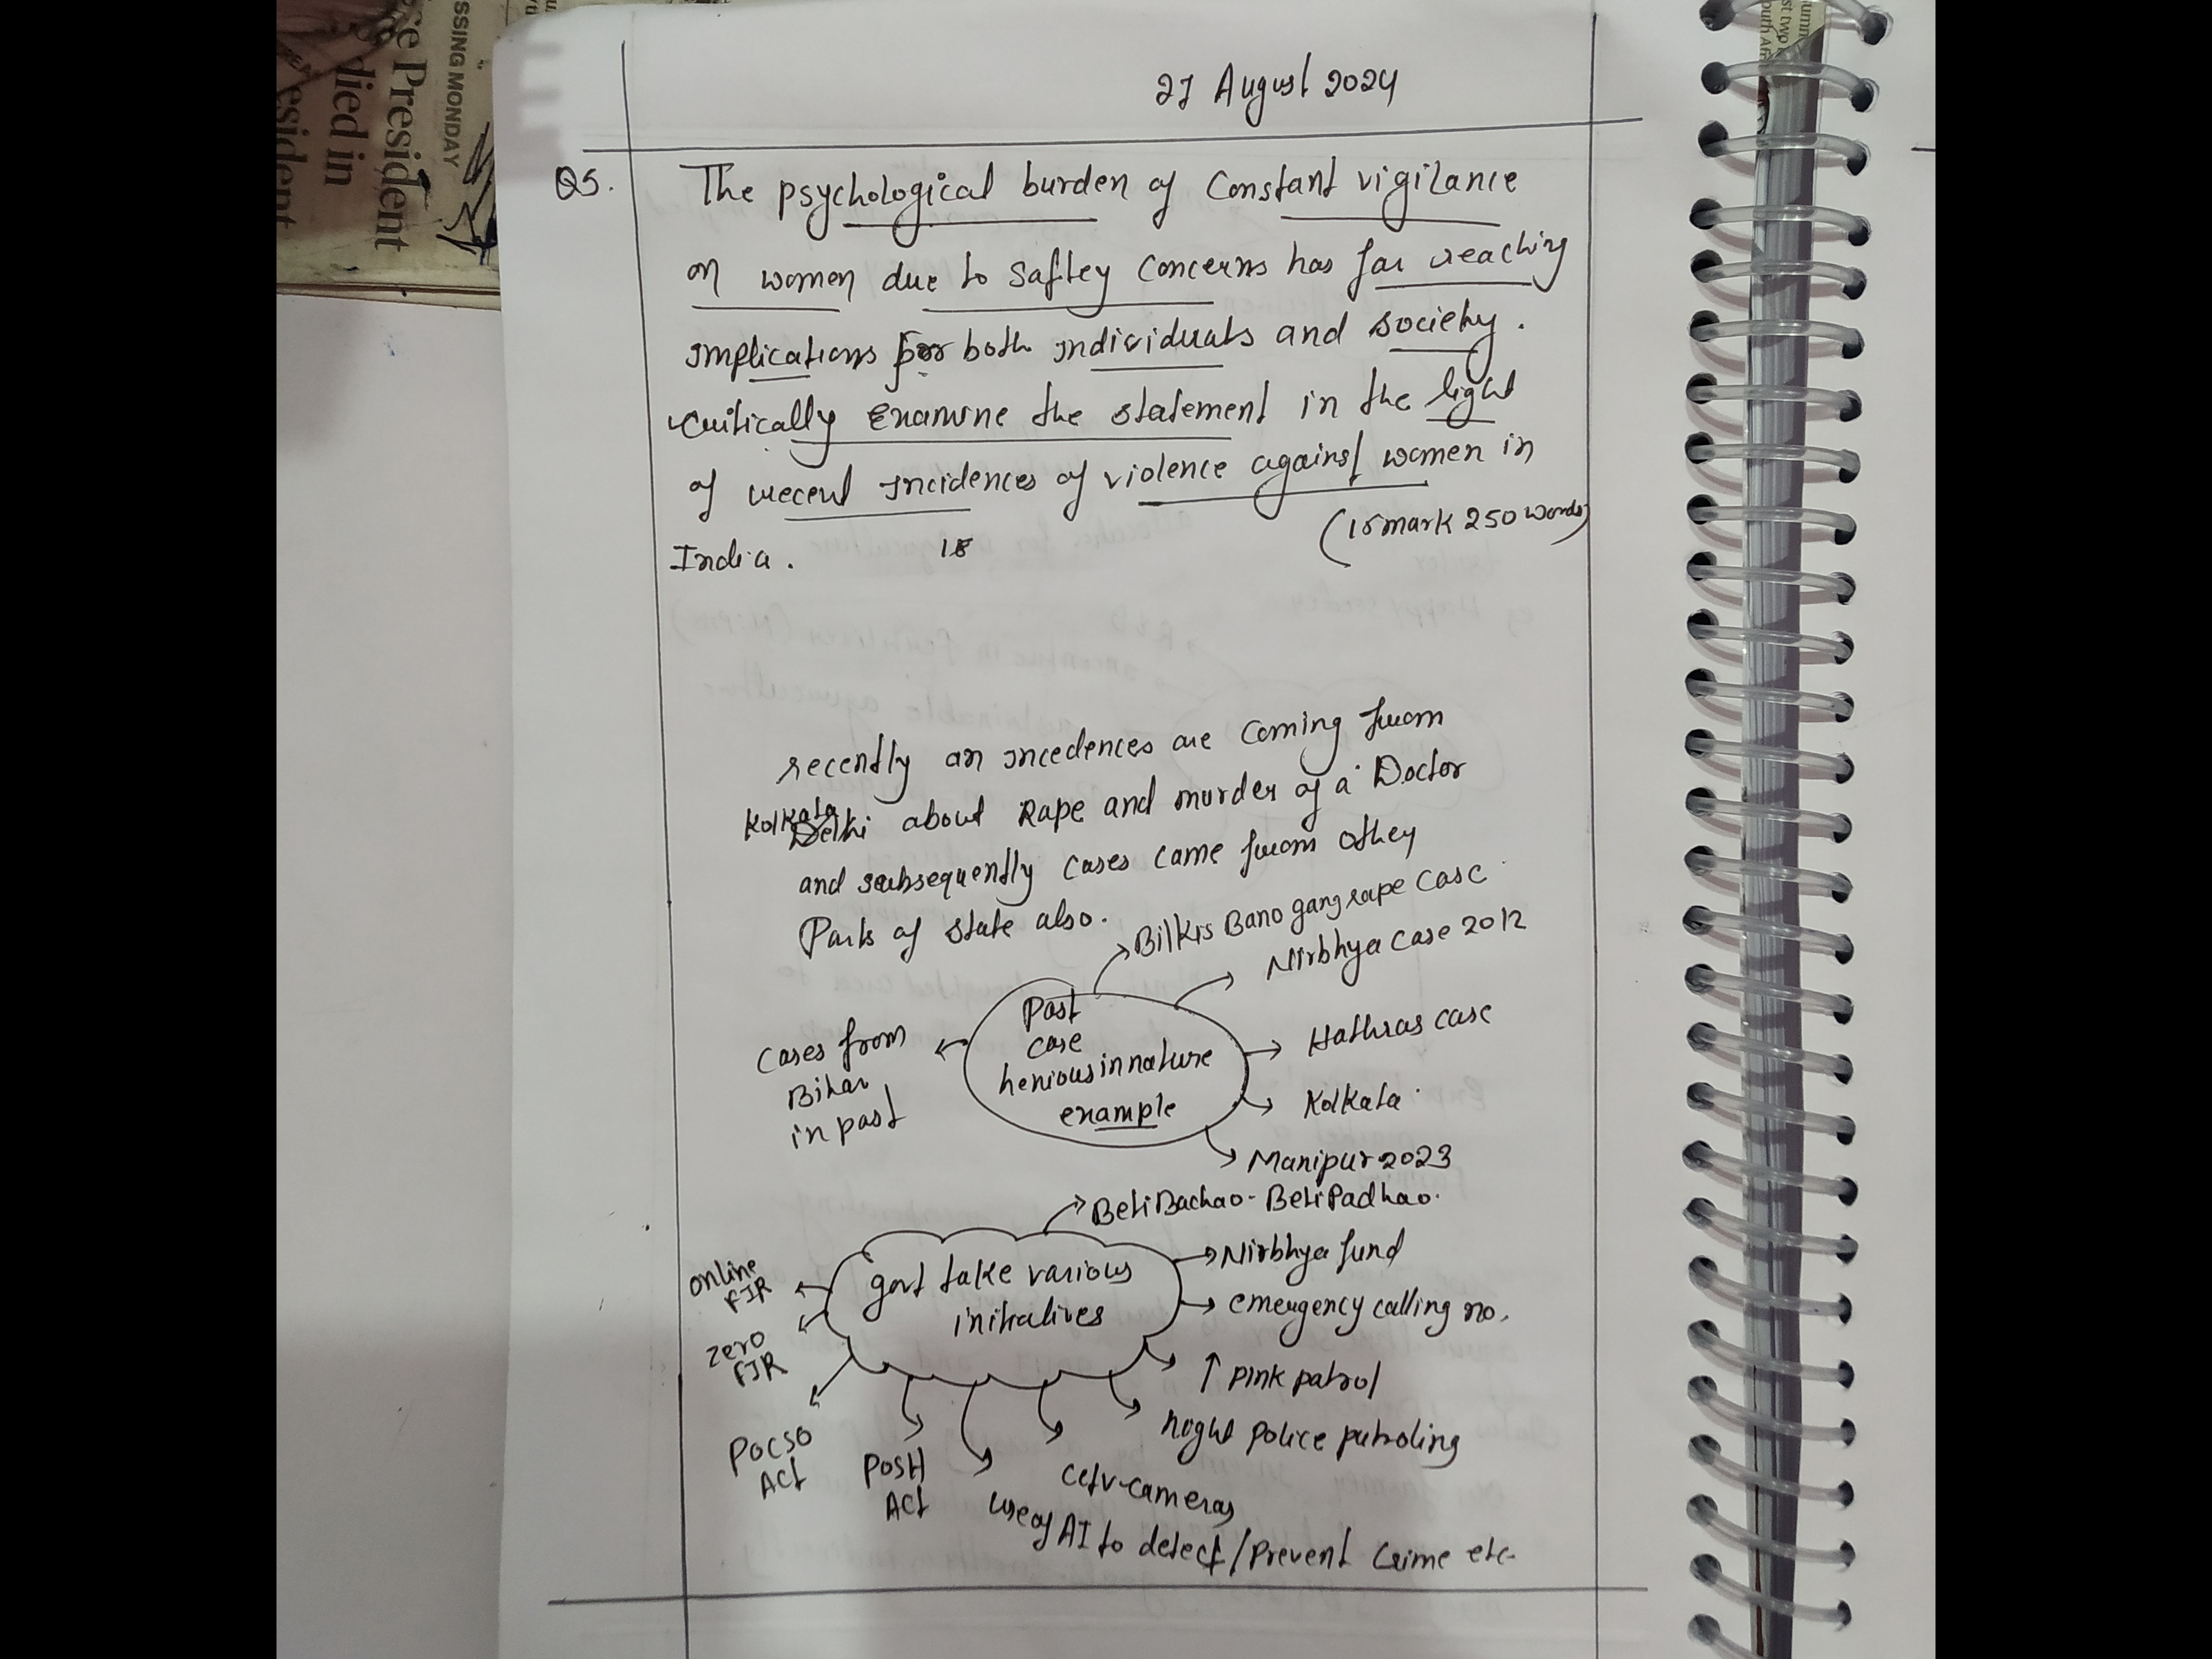 SSING MONDAY
e President
died in
esident
27 August 2024
Q5. The psychological burden of Constant vigilance
on women due to Saftey Concerns has far reaching
implications for both individuals and society.
Critically Examine the statement in the light
of recent incidences of violence against women in
India. 15 (15 mark 250 words)
recently an incedences are coming from
Kolkata Delhi about Rape and murder of a Doctor
and subsequently cases came from othey
Parts of state also.
Bilkis Bano gang rape case
Nirbhya case 2012
Past
case
henious in nature
example
Hathras case
Kolkata
Manipur 2023
Cases from
Bihar
in past
govt take various
initiatives
Beti Bachao - Beti Padhao.
Nirbhya fund
emergency calling no.
↑ pink patrol
night police patroling
cctv-cameras
use of AI to detect/Prevent Crime etc.
POSH
Act
POCSO
Act
zero
FIR
online
FIR